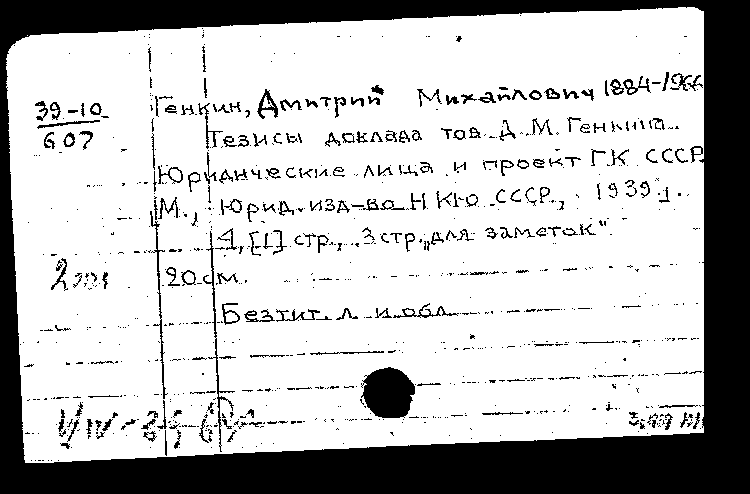 39-10
607
Генкин, Дмитрий Михайлович 1884-1966
Тезисы доклада тов. Д. М. Генкина.
Юридические лица и проект ГК СССР.
М., Юрид. изд-во НКЮ СССР, 1939 г.
4, [1] стр., 3 стр. „для заметок"
20 см.
Без тит. л. и обл